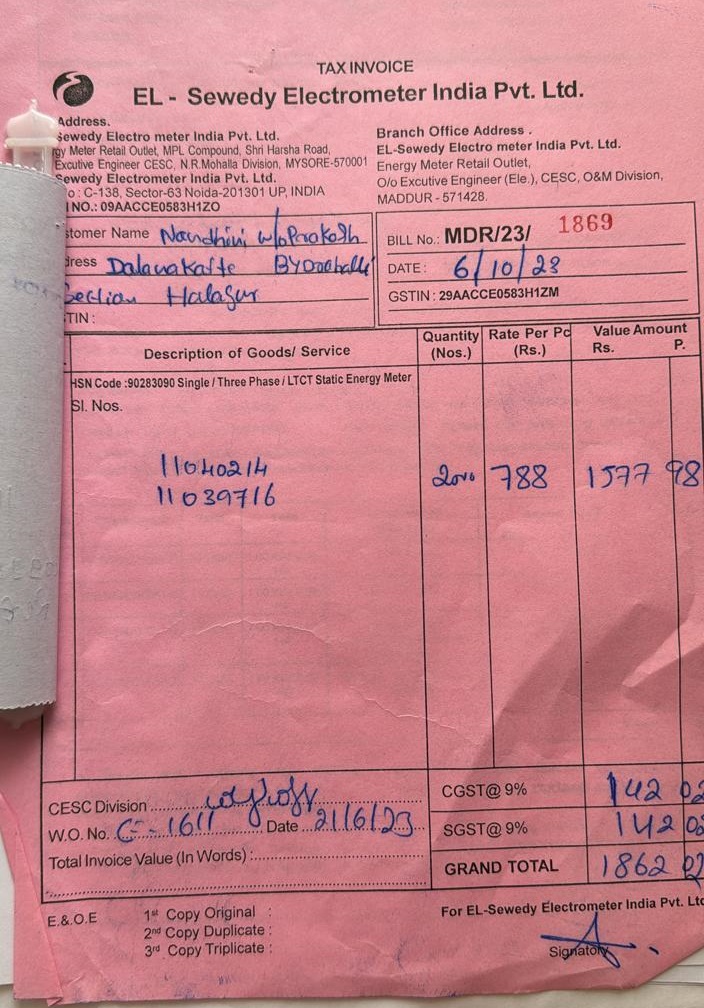 TAX INVOICE
EL - Sewedy Electrometer India Pvt. Ltd.
Address.
Sewedy Electro meter India Pvt. Ltd.
gy Meter Retail Outlet, MPL Compound, Shri Harsha Road,
Excutive Engineer CESC, N.R.Mohalla Division, MYSORE-570001
Sewedy Electrometer India Pvt. Ltd.
o : C-138, Sector-63 Noida-201301 UP, INDIA
NO.: 09AACCE0583H1ZO
Branch Office Address .
EL-Sewedy Electro meter India Pvt. Ltd.
Energy Meter Retail Outlet,
O/o Excutive Engineer (Ele.), CESC, O&M Division,
MADDUR - 571428.
stomer Name Nandhini w/o Prakash
dress
Section Halagur
TIN :
BILL No.: MDR/23/ 1869
DATE : 6/10/23
GSTIN : 29AACCE0583H1ZM
Description of Goods/ Service Quantity (Nos.) Rate Per Pc (Rs.) Value Amount Rs. P.
HSN Code :90283090 Single / Three Phase / LTCT Static Energy Meter
Sl. Nos.
11040214
11039716
788 1577 98
CESC Division
W.O. No. 1611 Date 21/6/23
Total Invoice Value (In Words) :
CGST@ 9% 142 02
SGST@ 9% 142 02
GRAND TOTAL 1862 02
E.& O.E
1st Copy Original :
2nd Copy Duplicate :
3rd Copy Triplicate :
For EL-Sewedy Electrometer India Pvt. Ltd
Signatory